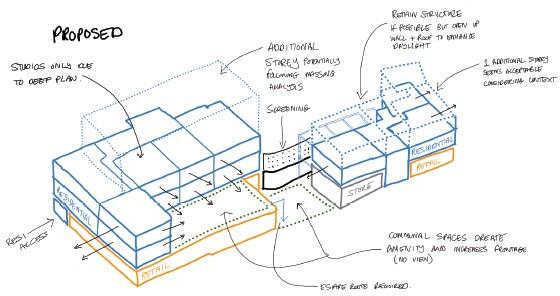 PROPOSED
STUDIOS ONLY DUE
TO DEEP PLAN.
ADDITIONAL
STOREY POTENTIALLY
FOLLOWING MASSING
ANALYSIS
SCREENING
RETAIN STRUCTURE
IF POSSIBLE BUT OPEN UP
WALL + ROOF TO ENHANCE
DAYLIGHT.
1 ADDITIONAL STOREY
SEEMS ACCEPTABLE
CONSIDERING CONTEXT.
RESIDENTIAL
RETAIL
STORE
RESIDENTIAL
RESI
ACCESS
RETAIL
COMMUNAL SPACES CREATE
AMENITY AND INCREASES FRONTAGE
(NO VIEW)
ESCAPE ROUTE REQUIRED.